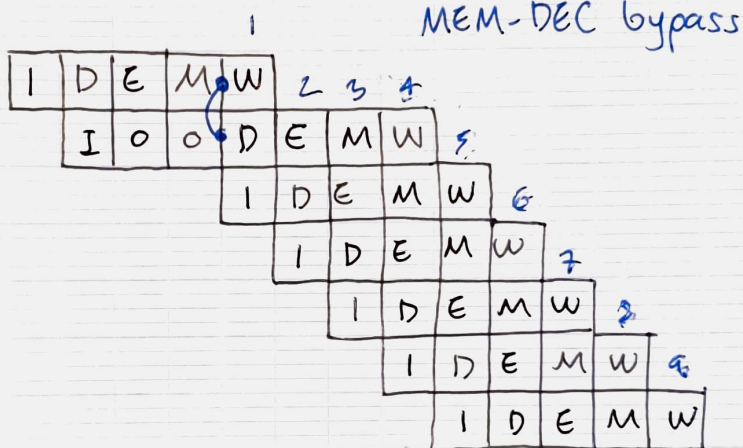 1 MEM-DEC bypass
I D E M W 2 3 4
I O O D E M W 5
I D E M W 6
I D E M W 7
I D E M W
I D E M W 9
I D E M W